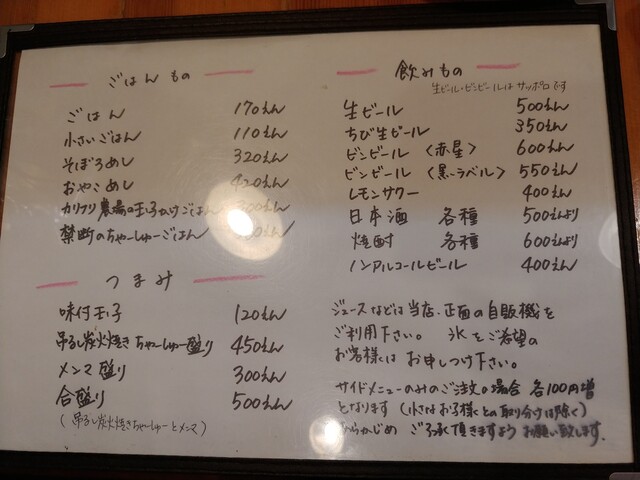 ごはんもの
ごはん 170えん
小さいごはん 110えん
そぼろめし 320えん
おやこめし 420えん
農場の玉子かけごはん 300えん
禁断のちゃーしゅーごはん
つまみ
味付玉子 120えん
吊るし炭火焼きちゃーしゅー盛り 450えん
メンマ盛り 300えん
合盛り 500えん
(吊るし炭火焼きちゃーしゅーとメンマ)
飲みもの
生ビール・ビンビールはサッポロです
生ビール 500えん
ちび生ビール 350えん
ビンビール〈赤星〉 600えん
ビンビール〈黒ラベル〉 550えん
レモンサワー 400えん
日本酒 各種 500えんより
焼酎 各種 600えんより
ノンアルコールビール 400えん
ジュースなどは当店、正面の自販機を
ご利用下さい。 氷をご希望の
お客様は お申しつけ下さい。
サイドメニューのみのご注文の場合 各100円増
となります(小さなお子様との取り分けは除く)
あらかじめ ご了承頂きますようお願い致します。